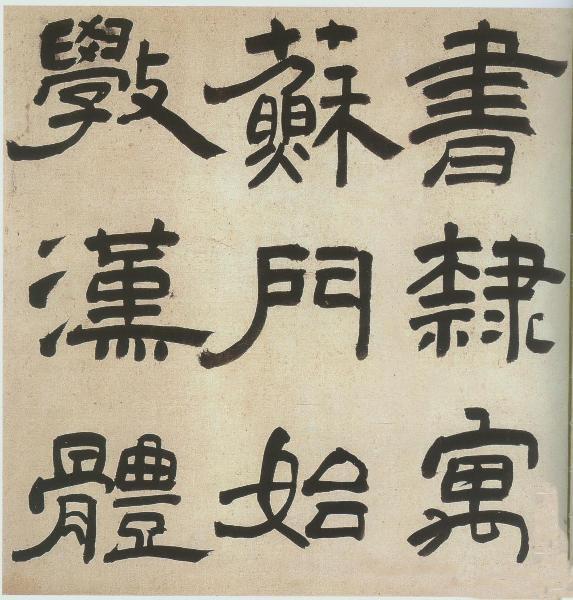 書隸寓
蘇門始
斅漢體